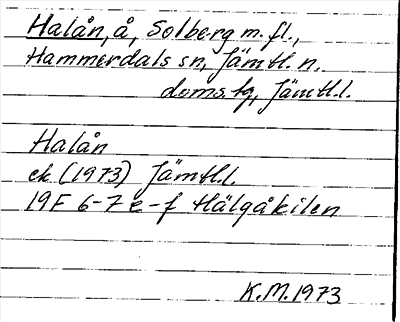 Halån, å, Solberg m. fl.,
Hammerdals sn, Jämtl. n.
doms. tg, Jämtl. l.
Halån
ek (1973) Jämtl. l.
19F 6-7 e-f Hälgåkilen
K.M. 1973